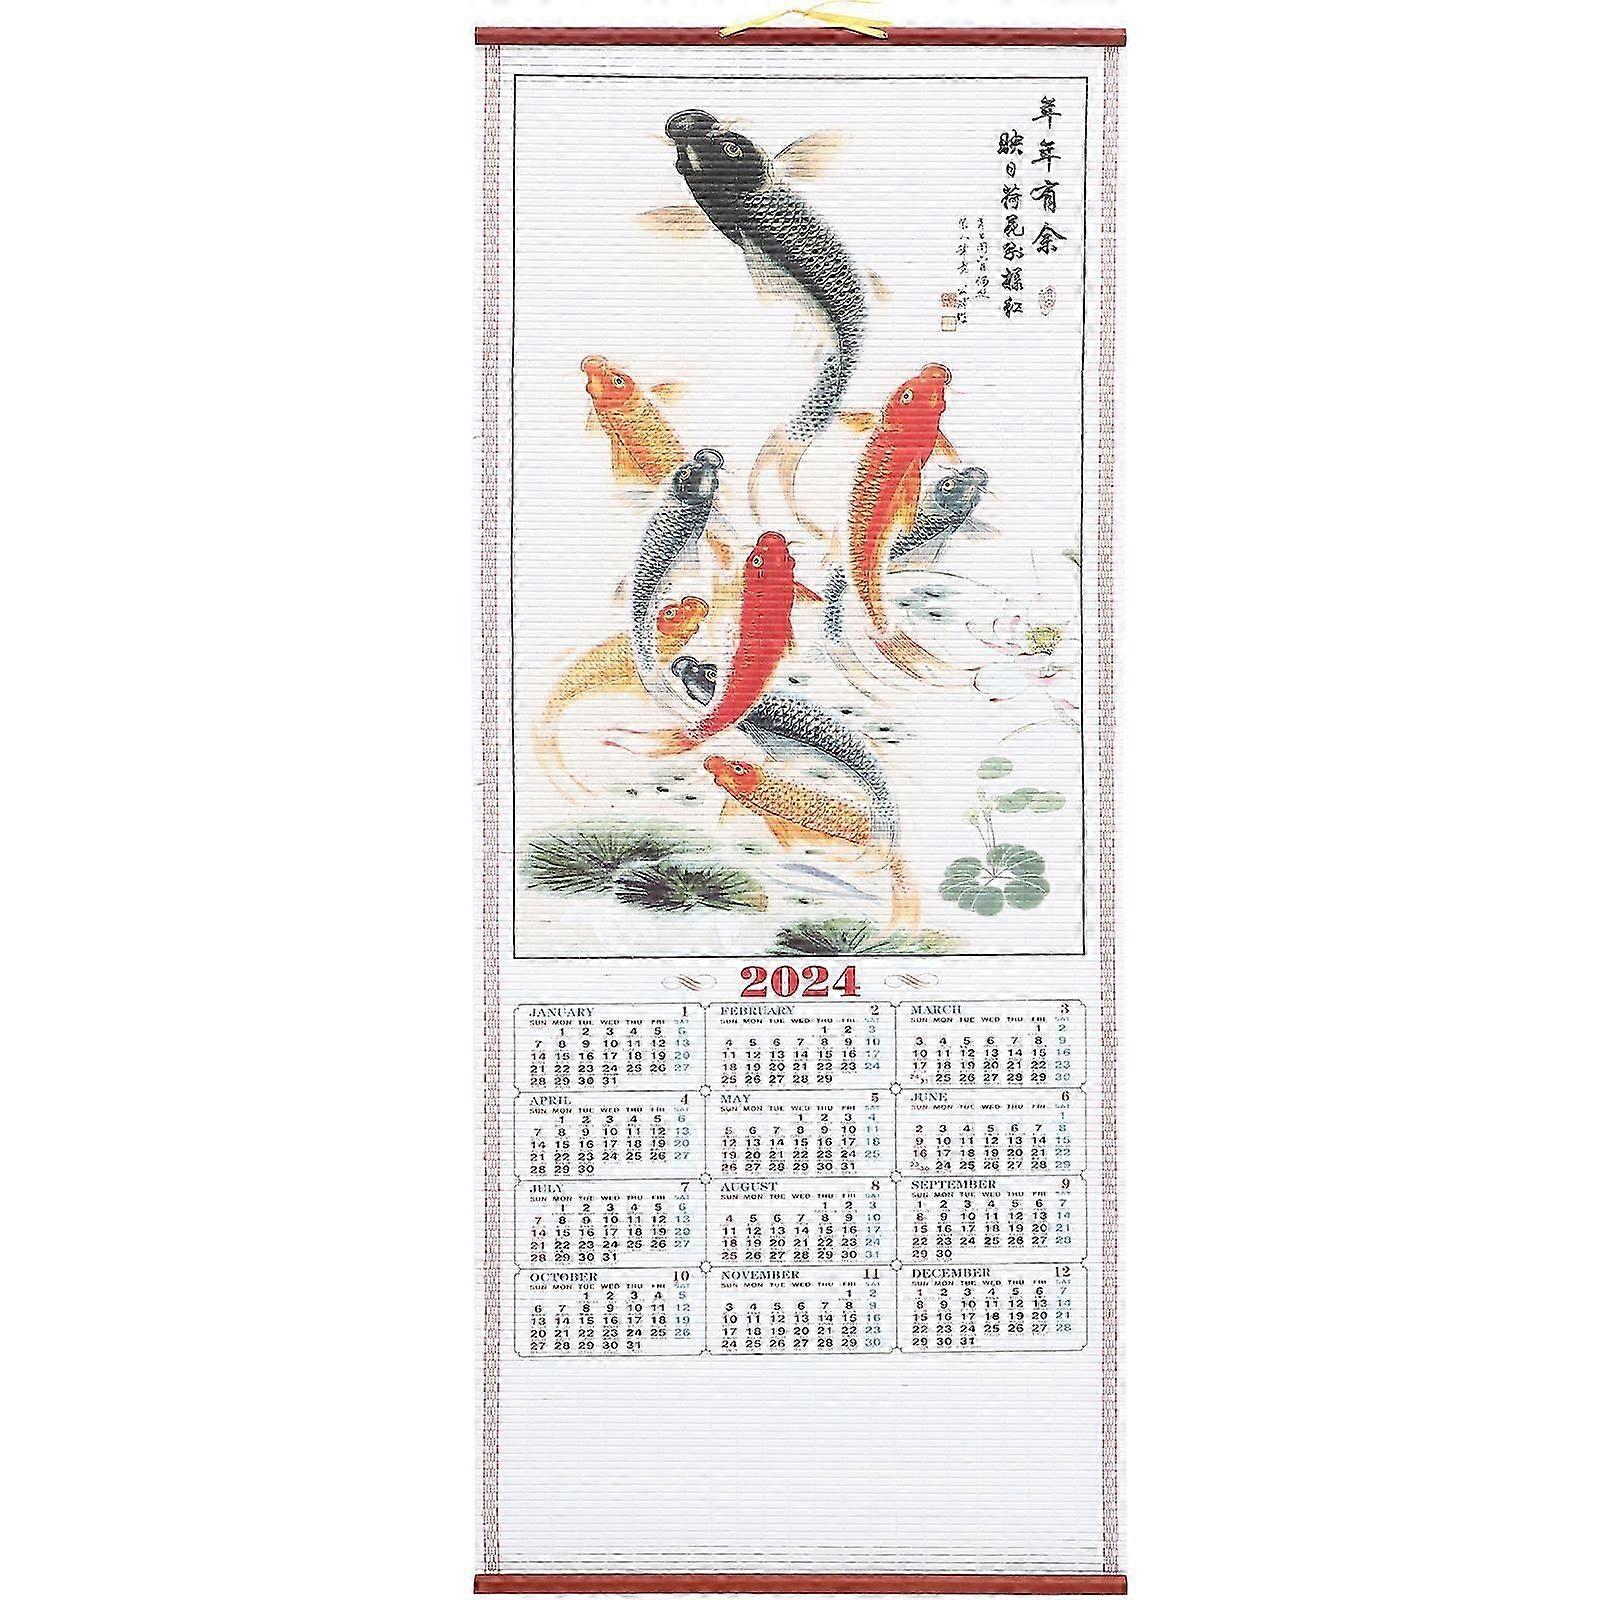 年年有余
映日荷花别樣红
2024
JANUARY 1
SUN MON TUE WED THU FRI SAT
1 2 3 4 5 6
7 8 9 10 11 12 13
14 15 16 17 18 19 20
21 22 23 24 25 26 27
28 29 30 31
FEBRUARY 2
SUN MON TUE WED THU FRI SAT
1 2 3
4 5 6 7 8 9 10
11 12 13 14 15 16 17
18 19 20 21 22 23 24
25 26 27 28 29
MARCH 3
SUN MON TUE WED THU FRI SAT
1 2
3 4 5 6 7 8 9
10 11 12 13 14 15 16
17 18 19 20 21 22 23
24 31 25 26 27 28 29 30
APRIL 4
SUN MON TUE WED THU FRI SAT
1 2 3 4 5 6
7 8 9 10 11 12 13
14 15 16 17 18 19 20
21 22 23 24 25 26 27
28 29 30
MAY 5
SUN MON TUE WED THU FRI SAT
1 2 3 4
5 6 7 8 9 10 11
12 13 14 15 16 17 18
19 20 21 22 23 24 25
26 27 28 29 30 31
JUNE 6
SUN MON TUE WED THU FRI SAT
1
2 3 4 5 6 7 8
9 10 11 12 13 14 15
16 17 18 19 20 21 22
23 30 24 25 26 27 28 29
JULY 7
SUN MON TUE WED THU FRI SAT
1 2 3 4 5 6
7 8 9 10 11 12 13
14 15 16 17 18 19 20
21 22 23 24 25 26 27
28 29 30 31
AUGUST 8
SUN MON TUE WED THU FRI SAT
1 2 3
4 5 6 7 8 9 10
11 12 13 14 15 16 17
18 19 20 21 22 23 24
25 26 27 28 29 30 31
SEPTEMBER 9
SUN MON TUE WED THU FRI SAT
1 2 3 4 5 6 7
8 9 10 11 12 13 14
15 16 17 18 19 20 21
22 23 24 25 26 27 28
29 30
OCTOBER 10
SUN MON TUE WED THU FRI SAT
1 2 3 4 5
6 7 8 9 10 11 12
13 14 15 16 17 18 19
20 21 22 23 24 25 26
27 28 29 30 31
NOVEMBER 11
SUN MON TUE WED THU FRI SAT
1 2
3 4 5 6 7 8 9
10 11 12 13 14 15 16
17 18 19 20 21 22 23
24 25 26 27 28 29 30
DECEMBER 12
SUN MON TUE WED THU FRI SAT
1 2 3 4 5 6 7
8 9 10 11 12 13 14
15 16 17 18 19 20 21
22 23 24 25 26 27 28
29 30 31